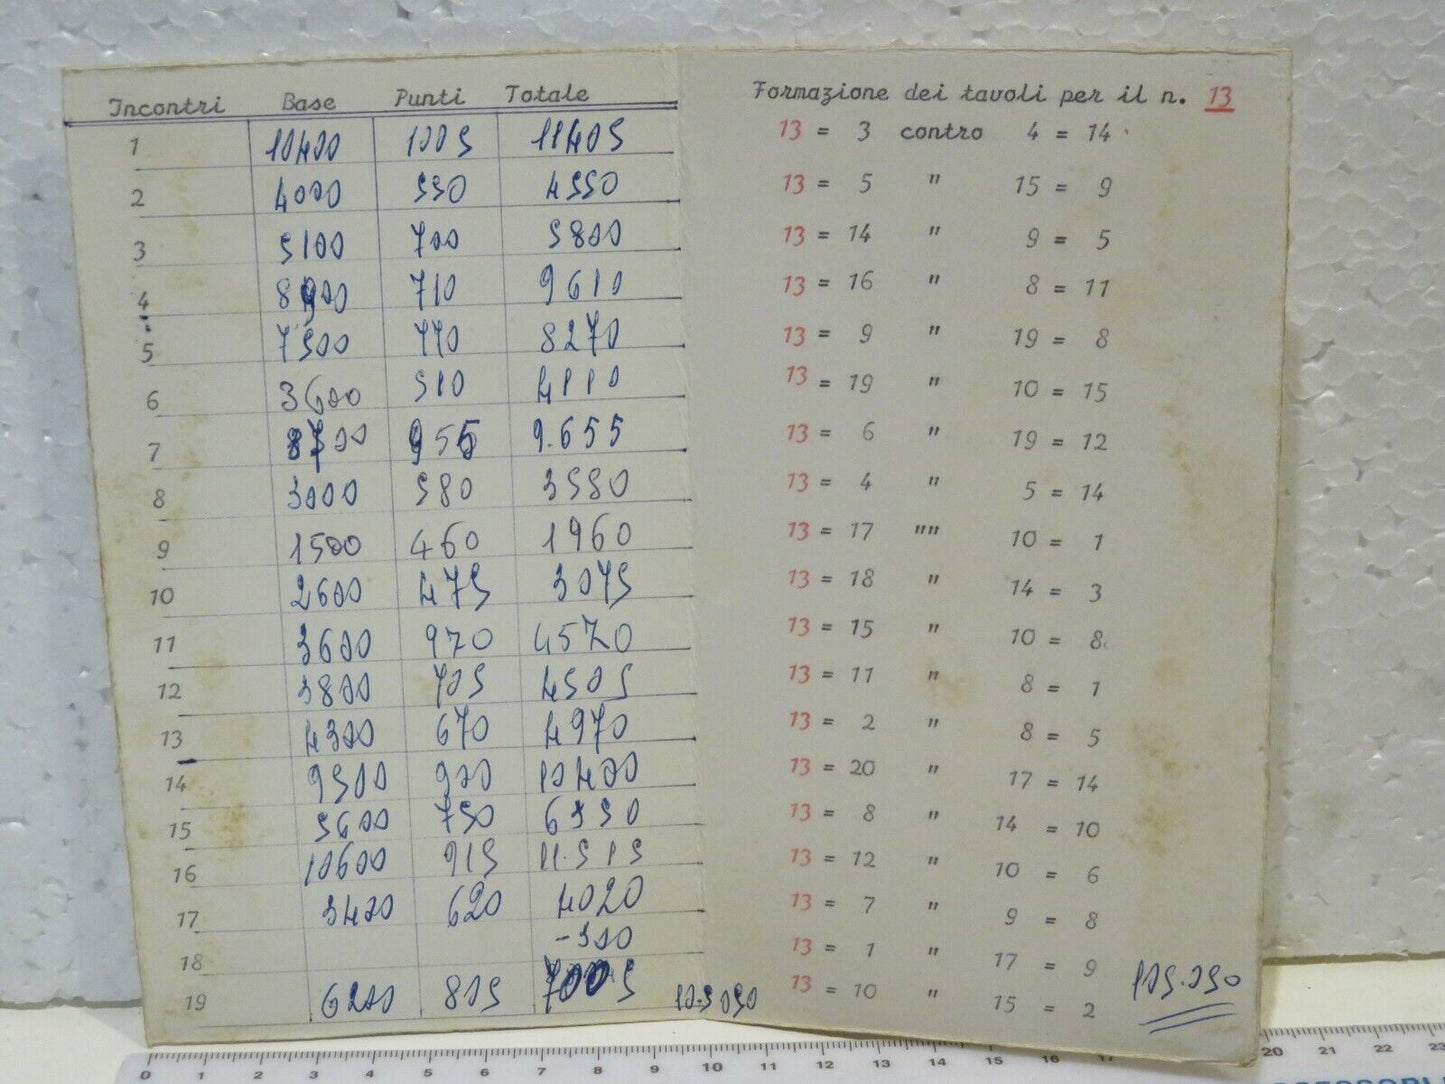 Incontri Base Punti Totale
1 10400 1005 11405
2 4000 550 4550
3 5100 700 5800
4 8900 710 9610
5 7500 770 8270
6 3600 510 4110
7 8700 955 9.655
8 3000 580 3580
9 1500 460 1960
10 2600 475 3075
11 3600 970 4570
12 3800 705 4505
13 4300 670 4970
14 9500 900 10400
15 5600 750 6350
16 10600 915 11.515
17 3400 620 4020
18 -300
19 6200 805 7005
105050
Formazione dei tavoli per il n. 13
13 = 3 contro 4 = 14
13 = 5 " 15 = 9
13 = 14 " 9 = 5
13 = 16 " 8 = 11
13 = 9 " 19 = 8
13 = 19 " 10 = 15
13 = 6 " 19 = 12
13 = 4 " 5 = 14
13 = 17 "" 10 = 1
13 = 18 " 14 = 3
13 = 15 " 10 = 8
13 = 11 " 8 = 1
13 = 2 " 8 = 5
13 = 20 " 17 = 14
13 = 8 " 14 = 10
13 = 12 " 10 = 6
13 = 7 " 9 = 8
13 = 1 " 17 = 9
13 = 10 " 15 = 2
105.050
0 1 2 3 4 5 6 7 8 9 10 11 12 13 14 15 16 17 20 21 22 23